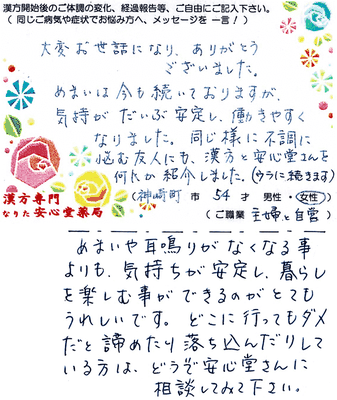 漢方開始後のご体調の変化、経過報告等、ご自由にご記入下さい。
（ 同じご病気や症状でお悩み方へ、メッセージを 一言！ ）
大変お世話になり、ありがとう
ございました。
めまいは今も続いておりますが、
気持が だいぶ安定し、働きやすく
なりました。 同じ様に不調に
悩む友人にも、漢方と安心堂さんを
何人か紹介しました。(ウラに続きます)
（ 神崎町 市 54 才 男性 ・ 女性 ）
漢方専門
なりた 安心堂薬局
（ ご職業 主婦と自営 ）
めまいや耳鳴りがなくなる事
よりも、気持ちが安定し、暮らし
を楽しむ事ができるのがとても
うれしいです。 どこに行ってもダメ
だと諦めたり落ち込んだりして
いる方は、どうぞ安心堂さんに
相談してみて下さい。